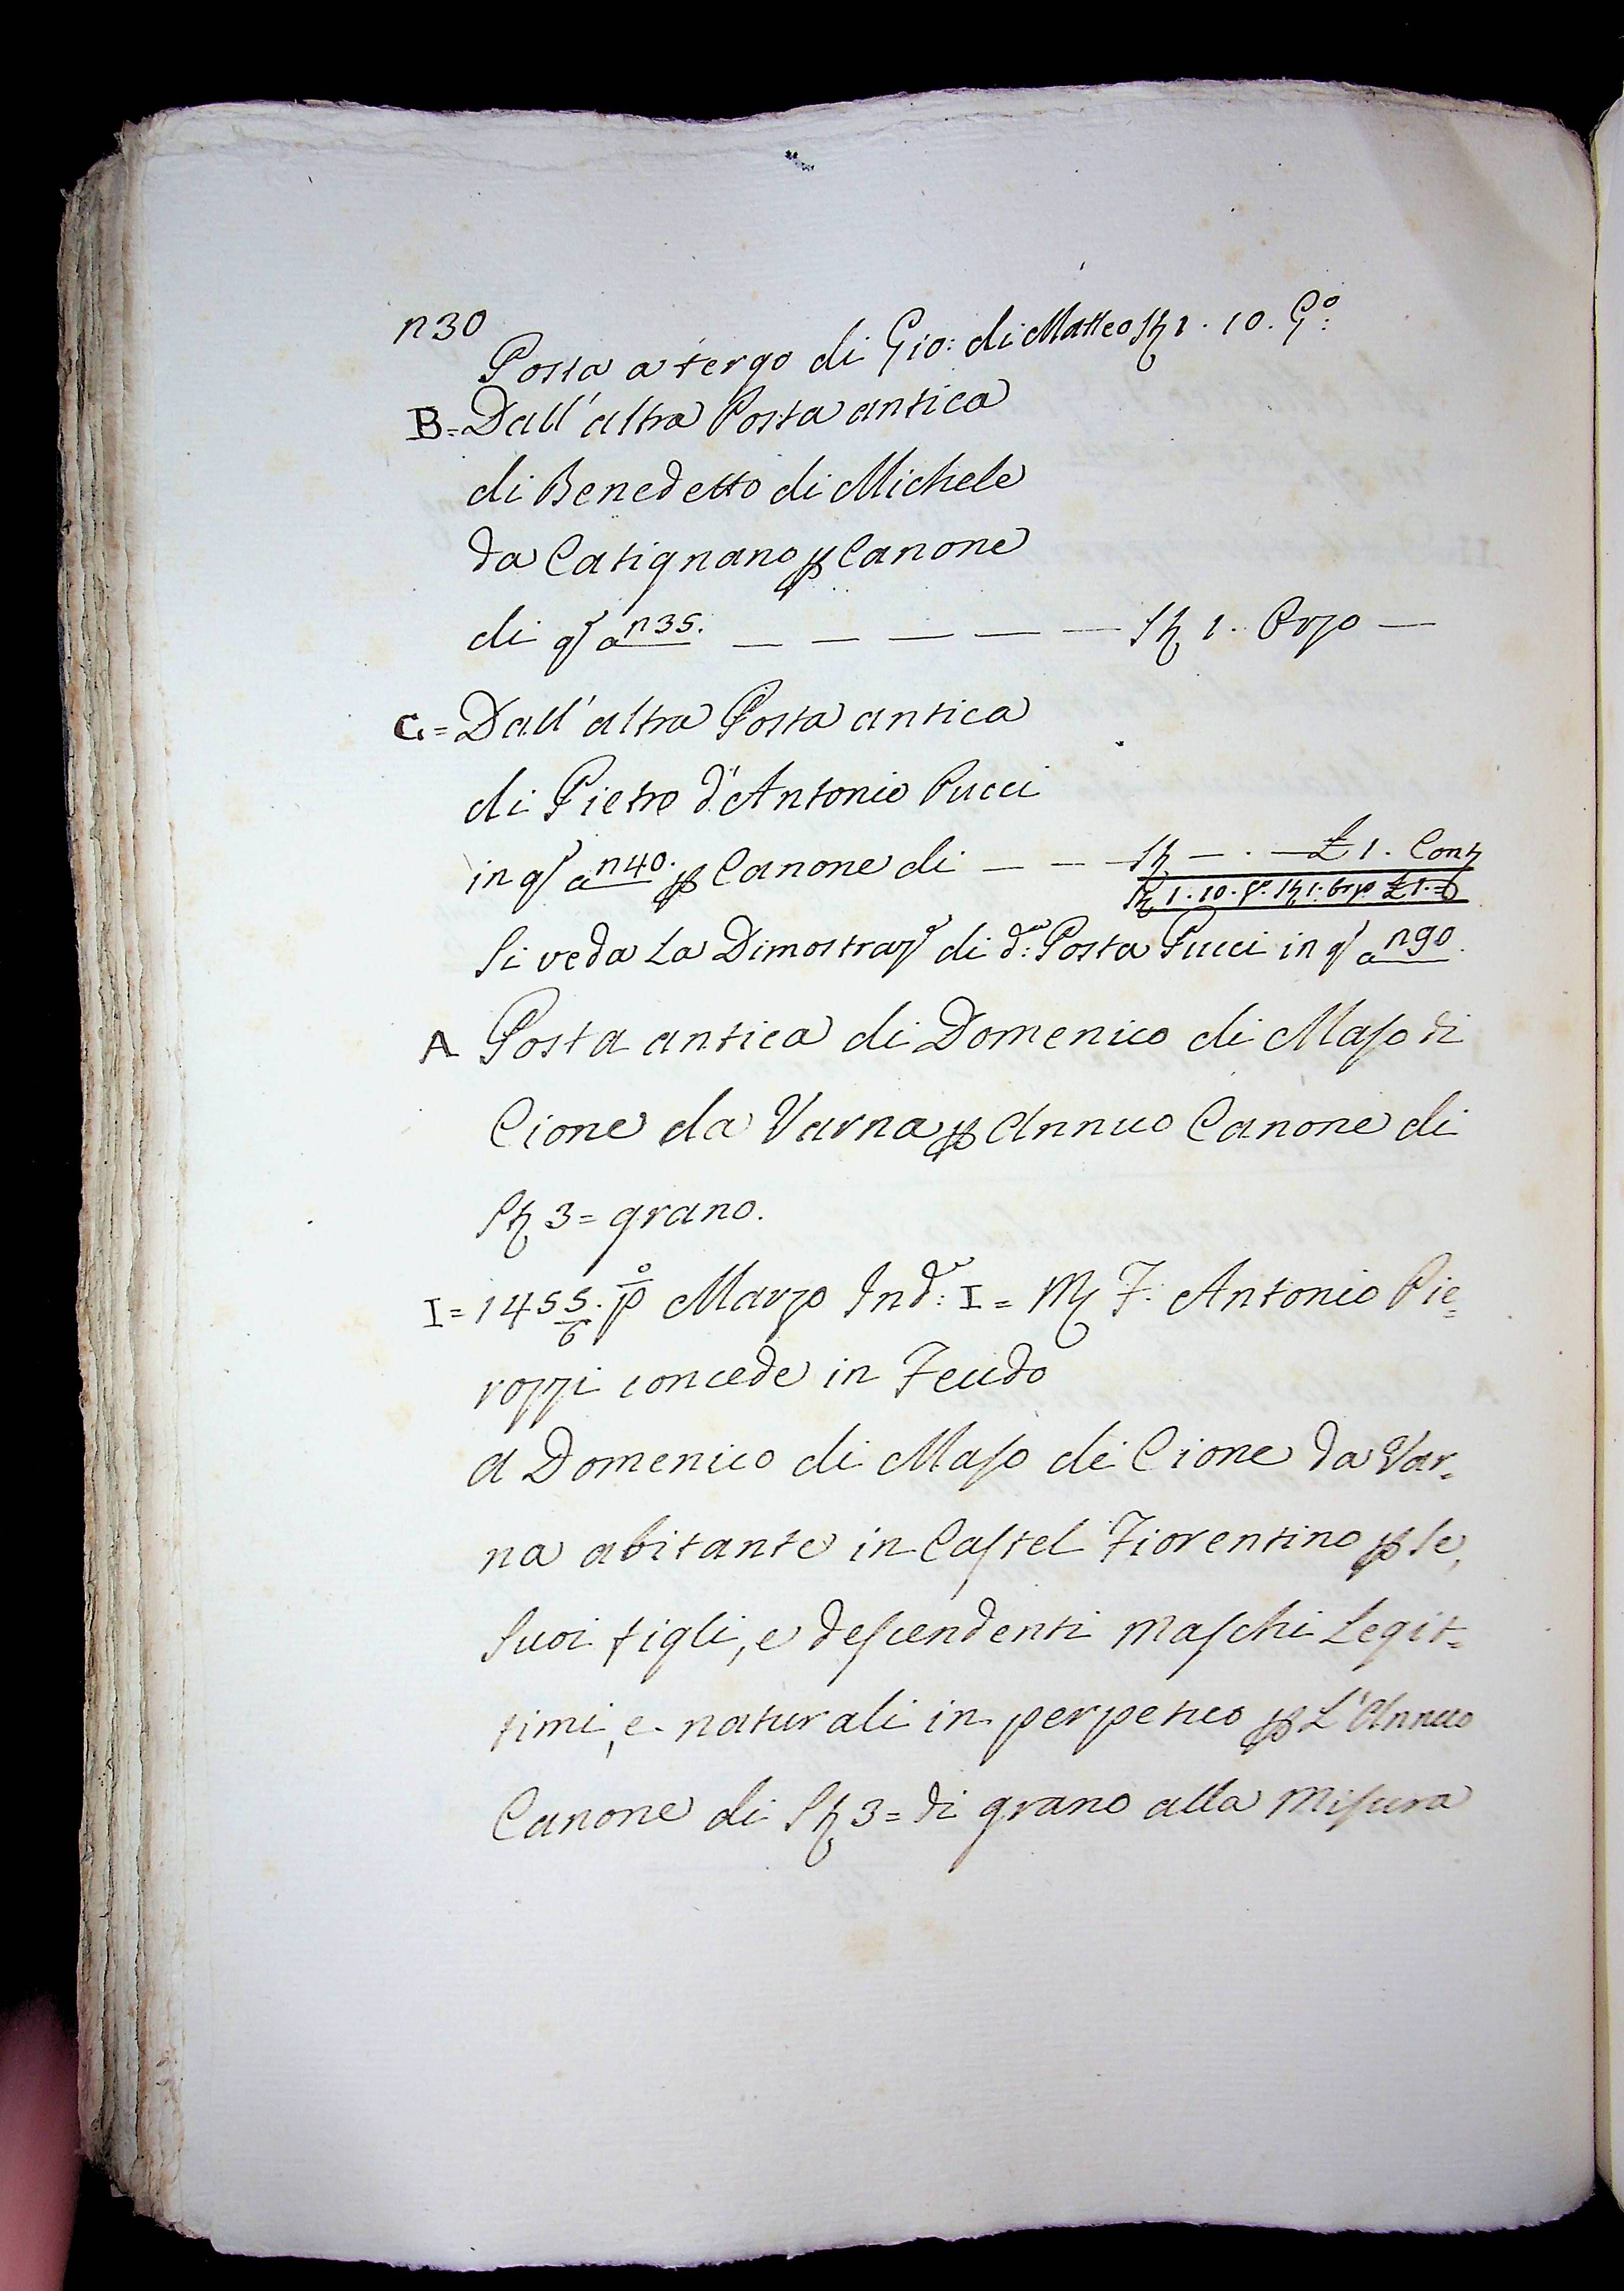 n30
Posta a tergo di Gio: di Matteo St 1. 10. Go:
B= Dall'altra Posta antica
di Benedetto di Michele
da Catignano p Canone
di qo a n35. — — — — — St 1. Orzo —
C= Dall'altra Posta antica
di Pietro d'Antonio Pucci
in qo a n40. p Canone di — — — St — . — £ 1. Cont
St 1. 10. go. St 1. Orzo £ 1. =
Si veda La Dimostraze di da: Posta Pucci in qo a n90.
A Posta antica di Domenico di Maso di
Cione da Varna p Annuo Canone di
St 3= grano.
I= 1455/6. po Marzo Inde: I= Mr F. Antonio Pie=
rozzi concede in Feudo
a Domenico di Maso di Cione da Var=
na abitante in Castel Fiorentino p se,
suoi figli, e descendenti Maschi Legit=
timi, e naturali in perpetuo p L'Annuo
Canone di St 3= di grano alla Misura